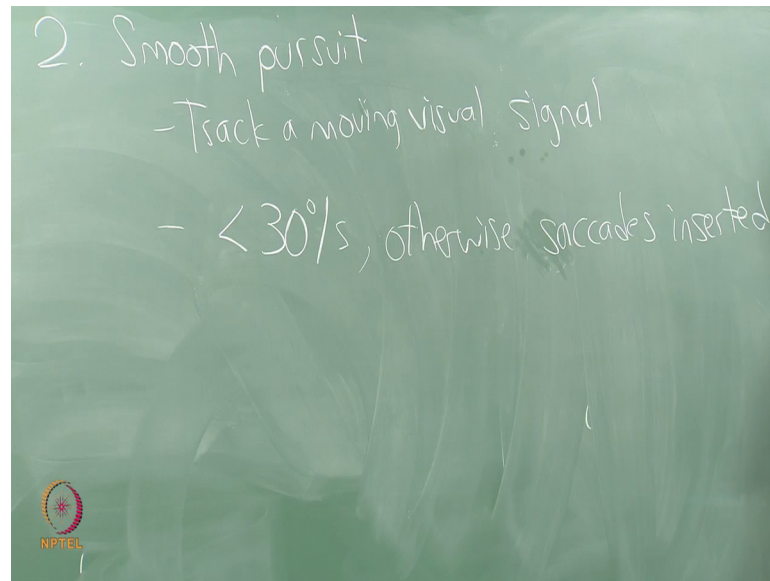 2. Smooth pursuit
- Track a moving visual signal
- < 30°/s, otherwise saccades inserted
NPTEL